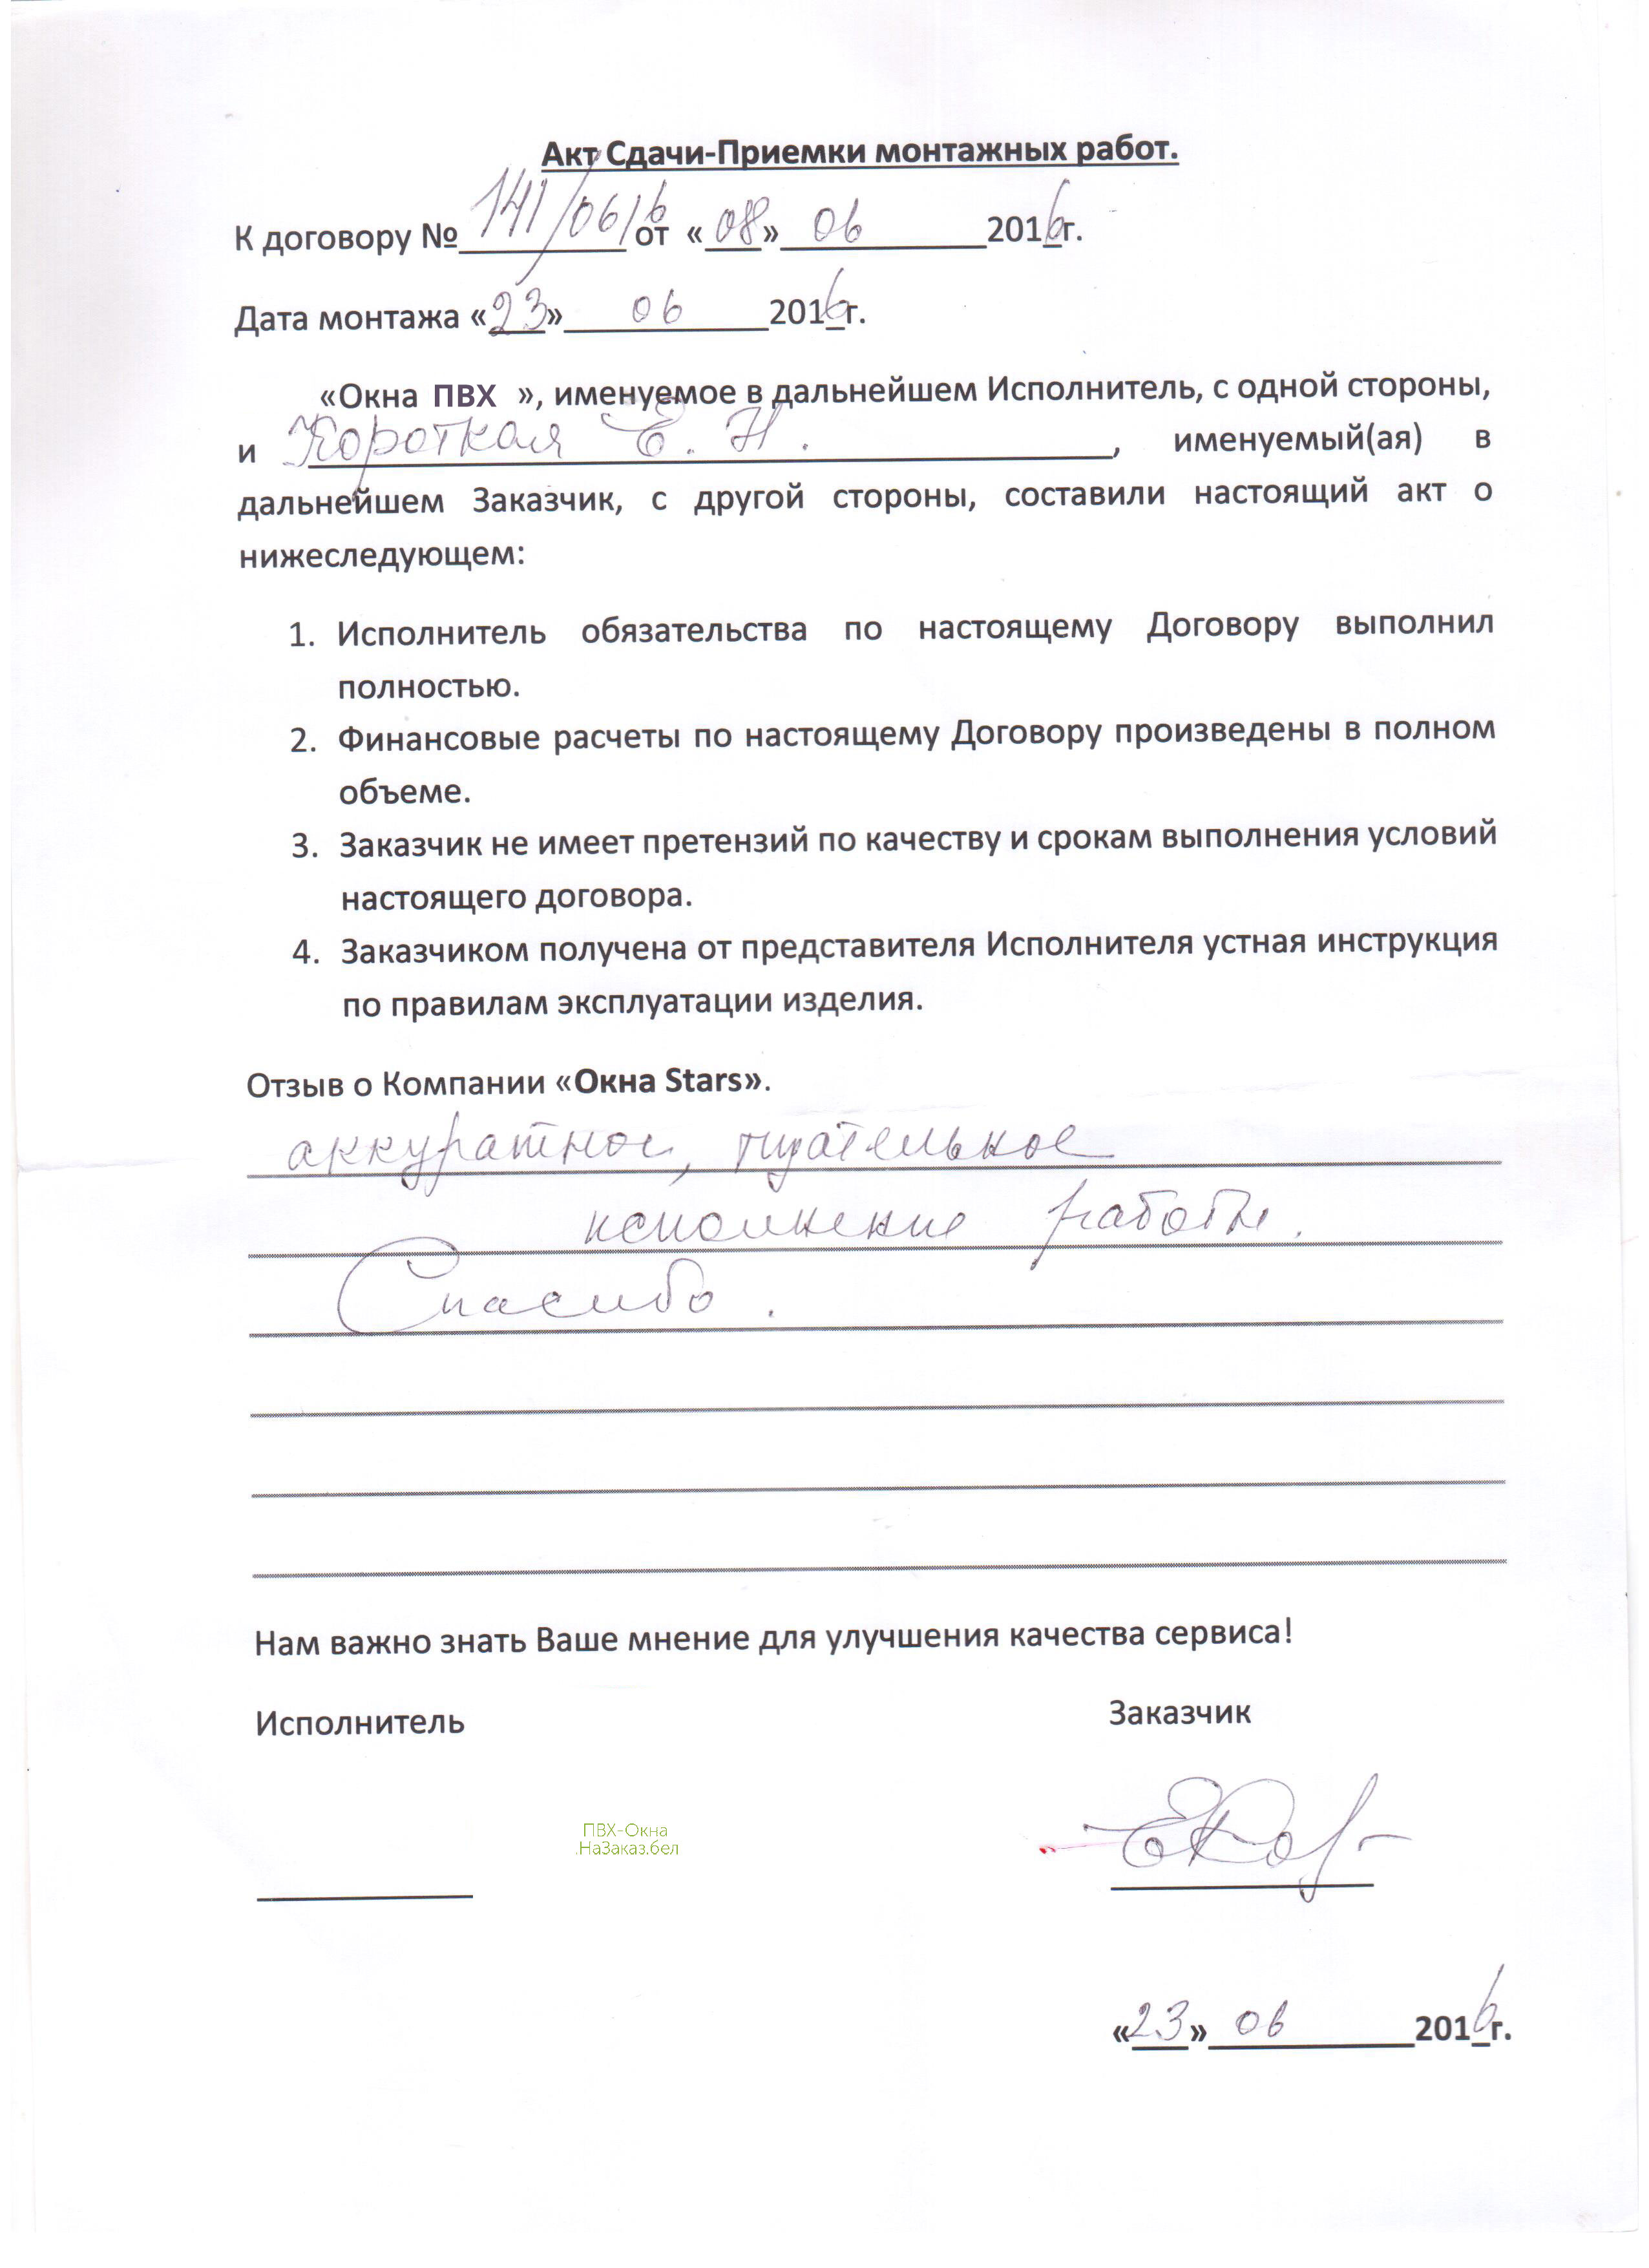 Акт Сдачи-Приемки монтажных работ.
К договору № 141/0616 от «08» 06 2016г.
Дата монтажа «23» 06 2016г.
«Окна ПВХ », именуемое в дальнейшем Исполнитель, с одной стороны,
и Короткая Е. Н. , именуемый(ая) в
дальнейшем Заказчик, с другой стороны, составили настоящий акт о
нижеследующем:
1. Исполнитель обязательства по настоящему Договору выполнил
полностью.
2. Финансовые расчеты по настоящему Договору произведены в полном
объеме.
3. Заказчик не имеет претензий по качеству и срокам выполнения условий
настоящего договора.
4. Заказчиком получена от представителя Исполнителя устная инструкция
по правилам эксплуатации изделия.
Отзыв о Компании «Окна Stars».
аккуратное, тщательное
исполнение работы.
Спасибо.
Нам важно знать Ваше мнение для улучшения качества сервиса!
Исполнитель Заказчик
ПВХ-Окна
.НаЗаказ.бел
«23» 06 2016г.